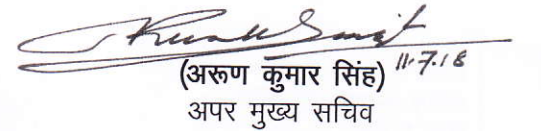 11.7.18
(अरूण कुमार सिंह)
अपर मुख्य सचिव